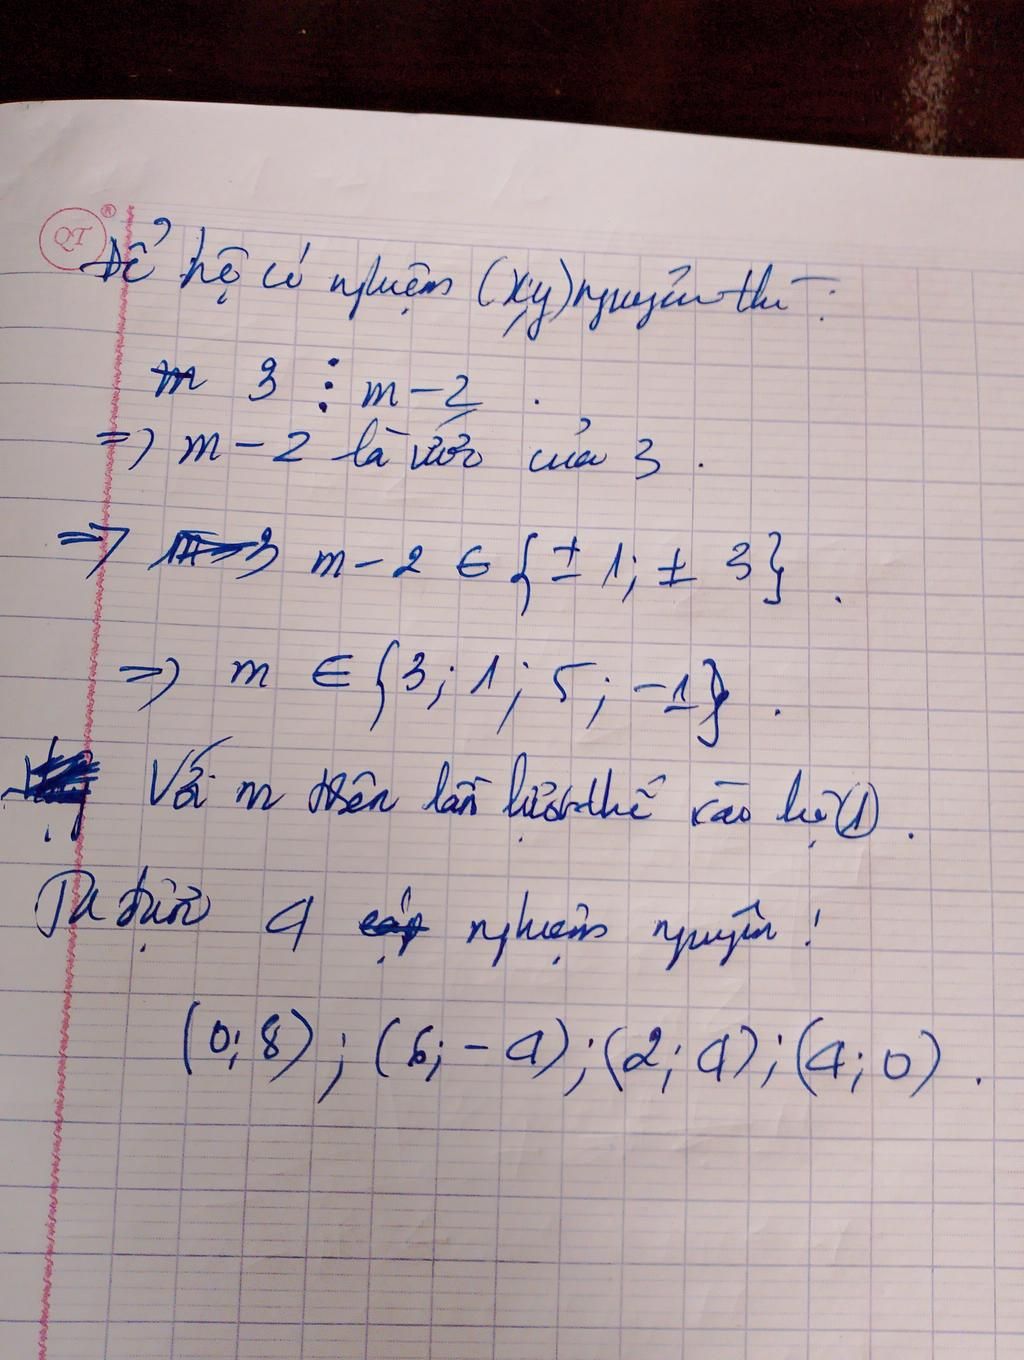 QT ®
Để hệ có nghiệm (x;y) nguyên thì:
3 ⋮ m-2 .
=> m-2 là ước của 3 .
=> m-2 ∈ {±1; ±3} .
=> m ∈ {3; 1; 5; -1} .
Với m trên lần lượt thế vào hệ (1) .
Ta được 4 nghiệm nguyên:
(0; 8) ; (6; -4) ; (2; 4) ; (4; 0) .